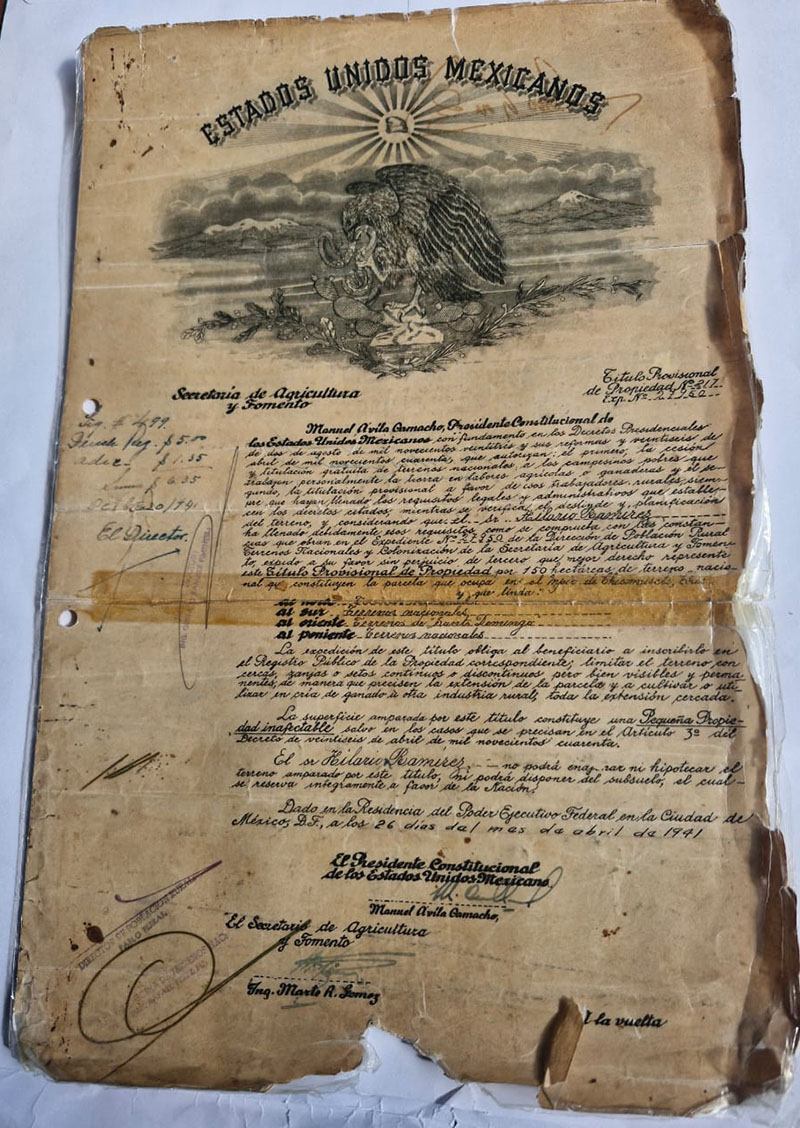 ESTADOS UNIDOS MEXICANOS
Secretaría de Agricultura
y Fomento
Título Provisional
de Propiedad Nº 217
Exp. Nº
$ 5.00
$ 1.35
$ 6.35
El Director.
Manuel Avila Camacho, Presidente Constitucional de
los Estados Unidos Mexicanos con fundamento en los Decretos Presidenciales
de dos de agosto de mil novecientos veintitrés y sus reformas y veintiseis de
abril de mil novecientos cuarenta, que autorizan: el primero, la cesión
y titulación gratuita de terrenos nacionales, a los campesinos pobres que
trabajen personalmente la tierra en labores agrícolas o ganaderas y el se-
gundo, la titulación provisional a favor de esos trabajadores rurales, siem-
pre que hayan llenado los requisitos legales y administrativos que estable-
cen los decretos citados, mientras se verifica el deslinde y planificación
del terreno, y considerando que el sr. Hilario Ramirez
ha llenado debidamente esos requisitos como se comprueba con las constan-
cias que obran en el Expediente Nº de la Dirección de Población Rural
Terrenos Nacionales y Colonización de la Secretaría de Agricultura y Fomen-
to, expido a su favor sin perjuicio de tercero que mejor derecho represente
este Título Provisional de Propiedad por 150 hectáreas de terreno nacio-
nal que constituyen la parcela que ocupa en el Mpio. de
y que linda:
al norte
al sur Terrenos nacionales
al oriente Terrenos de Santo Domingo
al poniente Terrenos nacionales
La expedición de este título obliga al beneficiario a inscribirlo en
el Registro Público de la Propiedad correspondiente; limitar el terreno con
cercas, zanjas o setos continuos o discontinuos pero bien visibles y perma-
nentes, de manera que precisen la extensión de la parcela y a cultivar o uti-
lizar en cría de ganado ú otra industria rural, toda la extensión cercada.
La superficie amparada por este título constituye una Pequeña Propie-
dad inafectable salvo en los casos que se precisan en el Artículo 3º del
Decreto de veintiseis de abril de mil novecientos cuarenta.
El sr Hilario Ramirez, no podrá ena rar ni hipotecar el
terreno amparado por este título, ni podrá disponer del subsuelo, el cual
se reserva íntegramente a favor de la Nación.
Dado en la Residencia del Poder Ejecutivo Federal en la Ciudad de
México, D.F., a los 26 días del mes de abril de 1941
El Presidente Constitucional
de los Estados Unidos Mexicano
Manuel Avila Camacho,
El Secretario de Agricultura
y Fomento
Ing. Marte R. Gomez
la vuelta